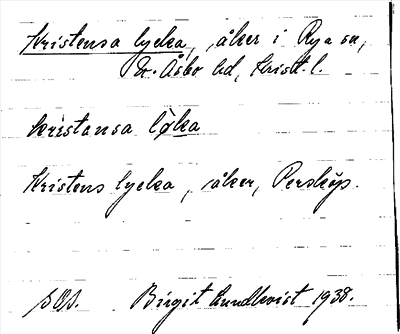 Kristensa lycka, åker i Rya sn,
N. Åsbo hd, Krist. l.
kristansa lø̀ka
Kristens lycka, åker, Perstorp.
Birgit Lundkvist 1938.